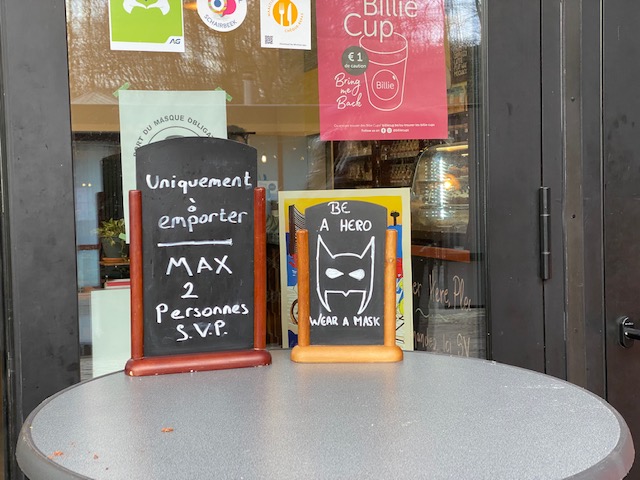 AG
SCHAERBEEK
Billie
Cup
€1
de caution
Bring
me
Back
Billie
PORT DU MASQUE OBLIGAT
Uniquement
à
emporter
MAX
2
Personnes
S.V.P.
BE
A HERO
WEAR A MASK